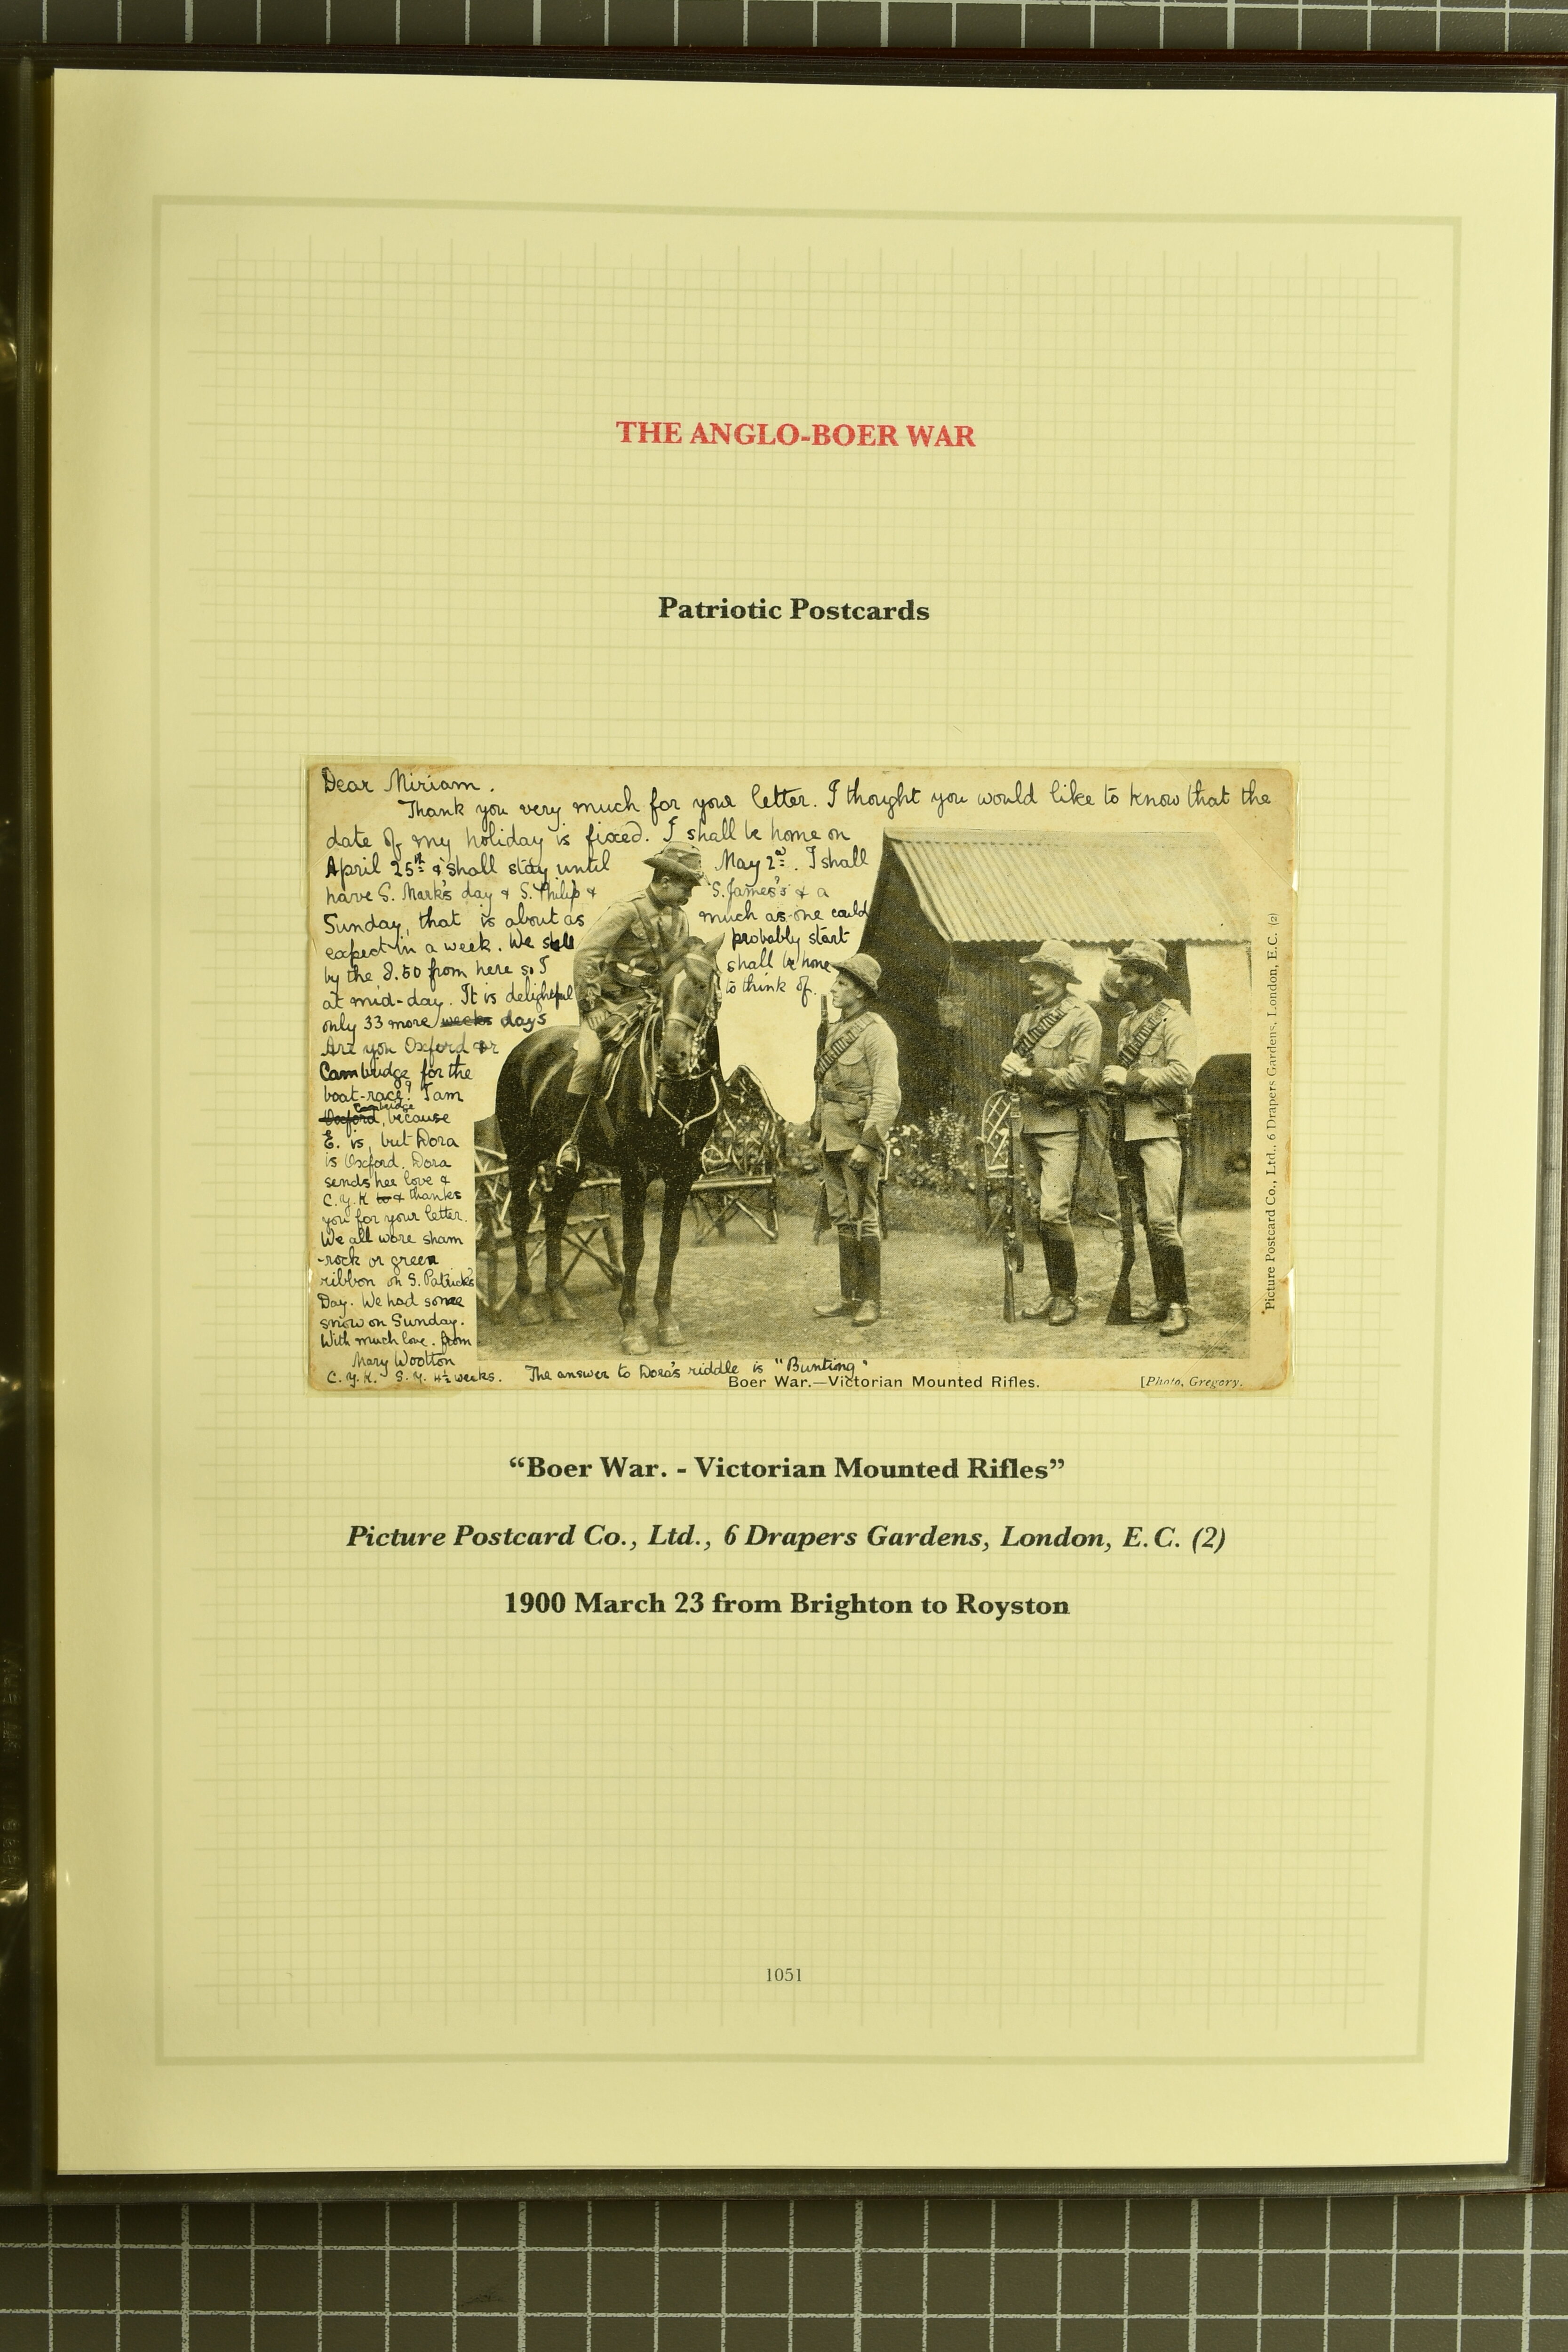 THE ANGLO-BOER WAR
Patriotic Postcards
Dear Miriam.
Thank you very much for your letter. I thought you would like to know that the
date of my holiday is fixed. I shall be home on
April 25th & shall stay until May 2nd. I shall
have S. Mark's day & S. Philip & S. James's & a
Sunday, that is about as much as one could
expect in a week. We shall probably start
by the 8.50 from here so I shall be home
at mid-day. It is delightful to think of.
only 33 more weeks days
Are you Oxford or
Cambridge for the
boat-race? I am
Oxford Cambridge, because
E. is, but Dora
is Oxford. Dora
sends her love &
C.Y.K to & thanks
you for your letter.
We all wore sham
-rock or green
ribbon on S. Patrick's
Day. We had some
snow on Sunday.
With much love. from
Mary Wootton
C.Y.K. S.Y. 4½ weeks. The answer to Dora's riddle is "Bunting"
Boer War.—Victorian Mounted Rifles. [Photo, Gregory.
Picture Postcard Co., Ltd., 6 Drapers Gardens, London, E.C. (2)
“Boer War. - Victorian Mounted Rifles”
Picture Postcard Co., Ltd., 6 Drapers Gardens, London, E.C. (2)
1900 March 23 from Brighton to Royston
1051